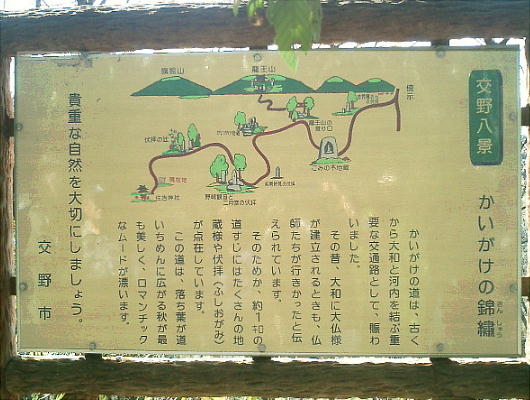 交野八景
かいがけの錦繡
きん しゅう
かいがけの道は、古く
から大和と河内を結ぶ重
要な交通路として、賑わ
いました。
その昔、大和に大仏様
が建立されるときも、仏
師たちが行きかったと伝
えられています。
そのためか、約1キロの
道すじにはたくさんの地
蔵様や伏拝(ふしおがみ)
が点在しています。
この道は、落ち葉が道
いちめんに広がる秋が最
も美しく、ロマンチック
なムードが漂います。
貴重な自然を大切にしましょう。
交野市
旗振山
龍王山
傍示
龍王山の
登り口
ごみの木地蔵
伏拝の辻
現在地
住吉神社
野崎観音と
二月堂の伏拝